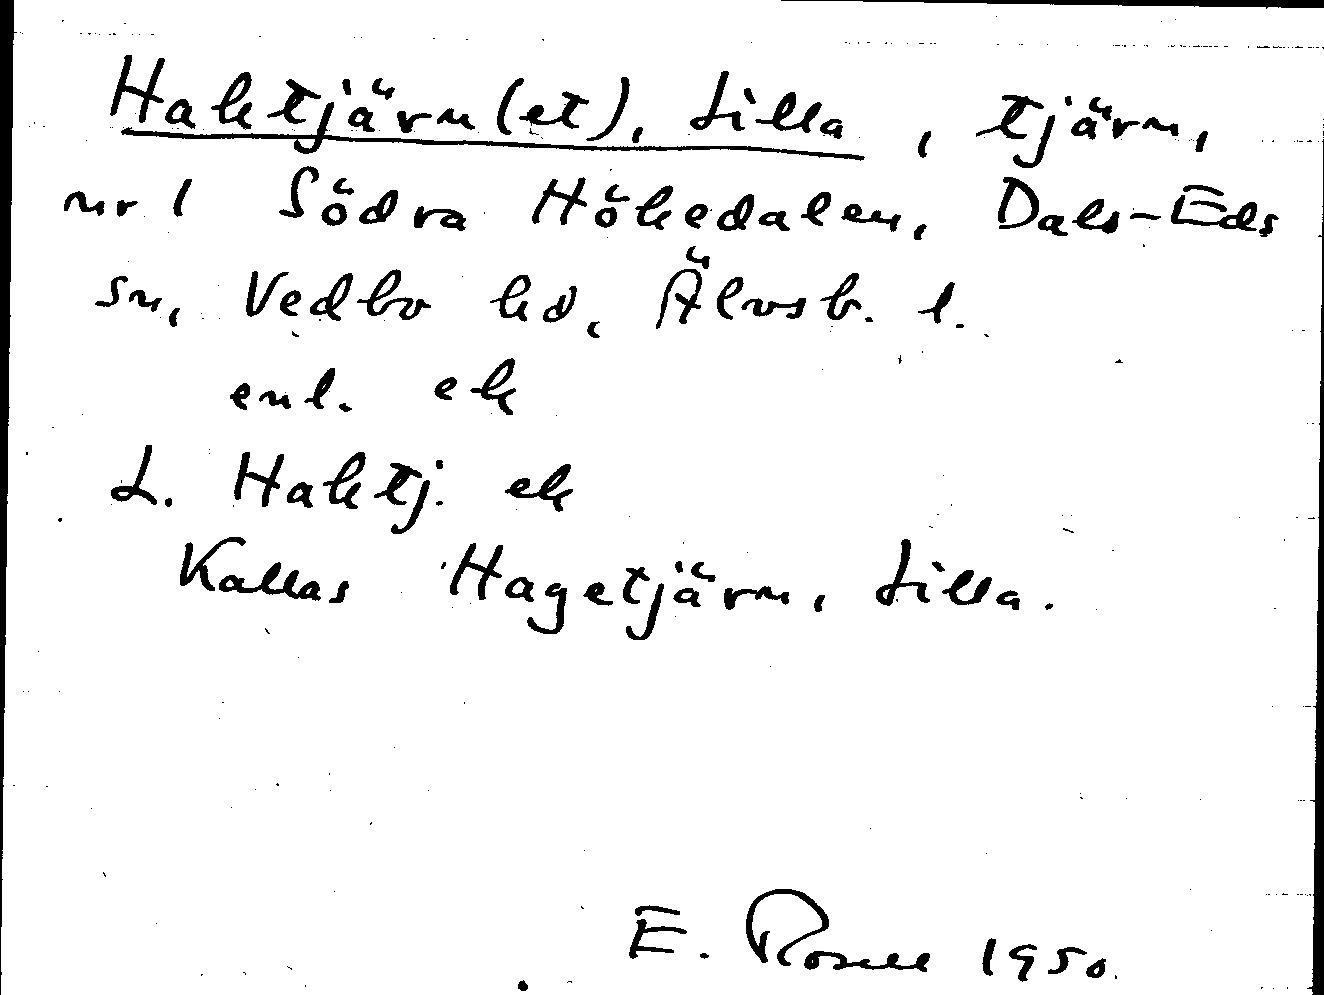 Haktjärn(et), Lilla, tjärn,
nr 1 Södra Hökedalen, Dals-Eds
sn, Vedbo hd, Älvsb. l.
enl. ek
L. Haktj. ek
Kallas Hagetjärn, Lilla.
E. Rosell 1950.